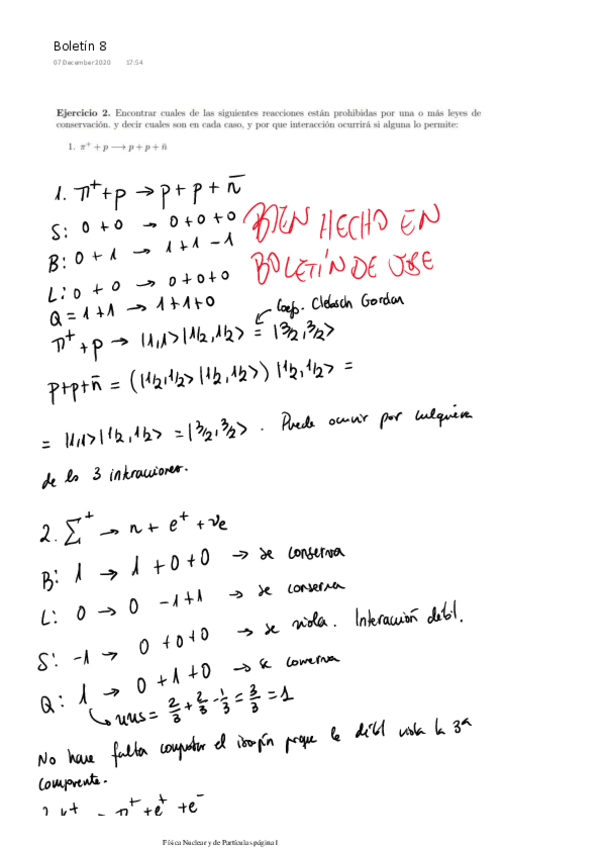 Boletín 8
07 December 2020 17:54
Ejercicio 2. Encontrar cuales de las siguientes reacciones están prohibidas por una o más leyes de
conservación. y decir cuales son en cada caso, y por que interacción ocurrirá si alguna lo permite:
1. π⁺ + p ⟶ p + p + n̄
1. π⁺ + p → p + p + n̄
S: 0 + 0 → 0 + 0 + 0
B: 0 + 1 → 1 + 1 - 1
L: 0 + 0 → 0 + 0 + 0
Q = 1 + 1 → 1 + 1 + 0
BIEN HECHO EN
BOLETÍN DE JOSE
Coef. Clebsch Gordan
π⁺ + p → |1,1>|1/2,1/2> = |3/2,3/2>
p + p + n̄ = (|1/2,1/2>|1/2,1/2>)|1/2,1/2> =
= |1,1>|1/2,1/2> = |3/2,3/2>. Puede ocurrir por culquiera
de ls 3 interacciones.
2. Σ⁺ → n + e⁺ + νe
B: 1 → 1 + 0 + 0 → se conserva
L: 0 → 0 -1 + 1 → se conserva
S: -1 → 0 + 0 + 0 → se viola. Interacción débil.
Q: 1 → 0 + 1 + 0 → se conserva
↳ uus = 2/3 + 2/3 - 1/3 = 3/3 = 1
No hace falta computar el isospín porque la débil viola la 3ª
componente.
π⁺ + e⁺ + e⁻
Física Nuclear y de Partículas página 1